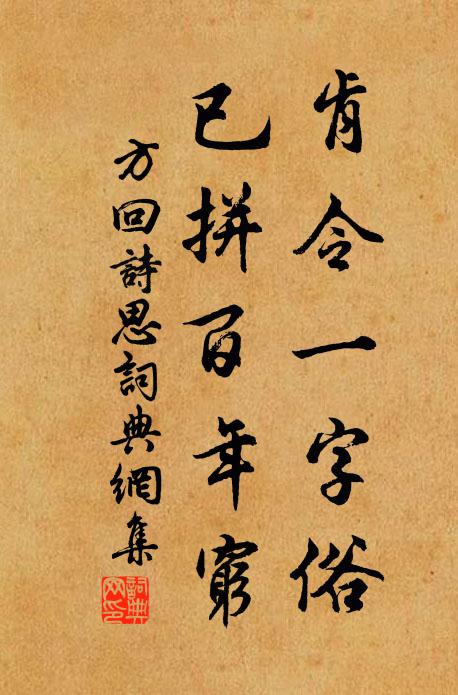 肯令一字俗
已拼百年窮
方回詩思詞典網集
詞典網印